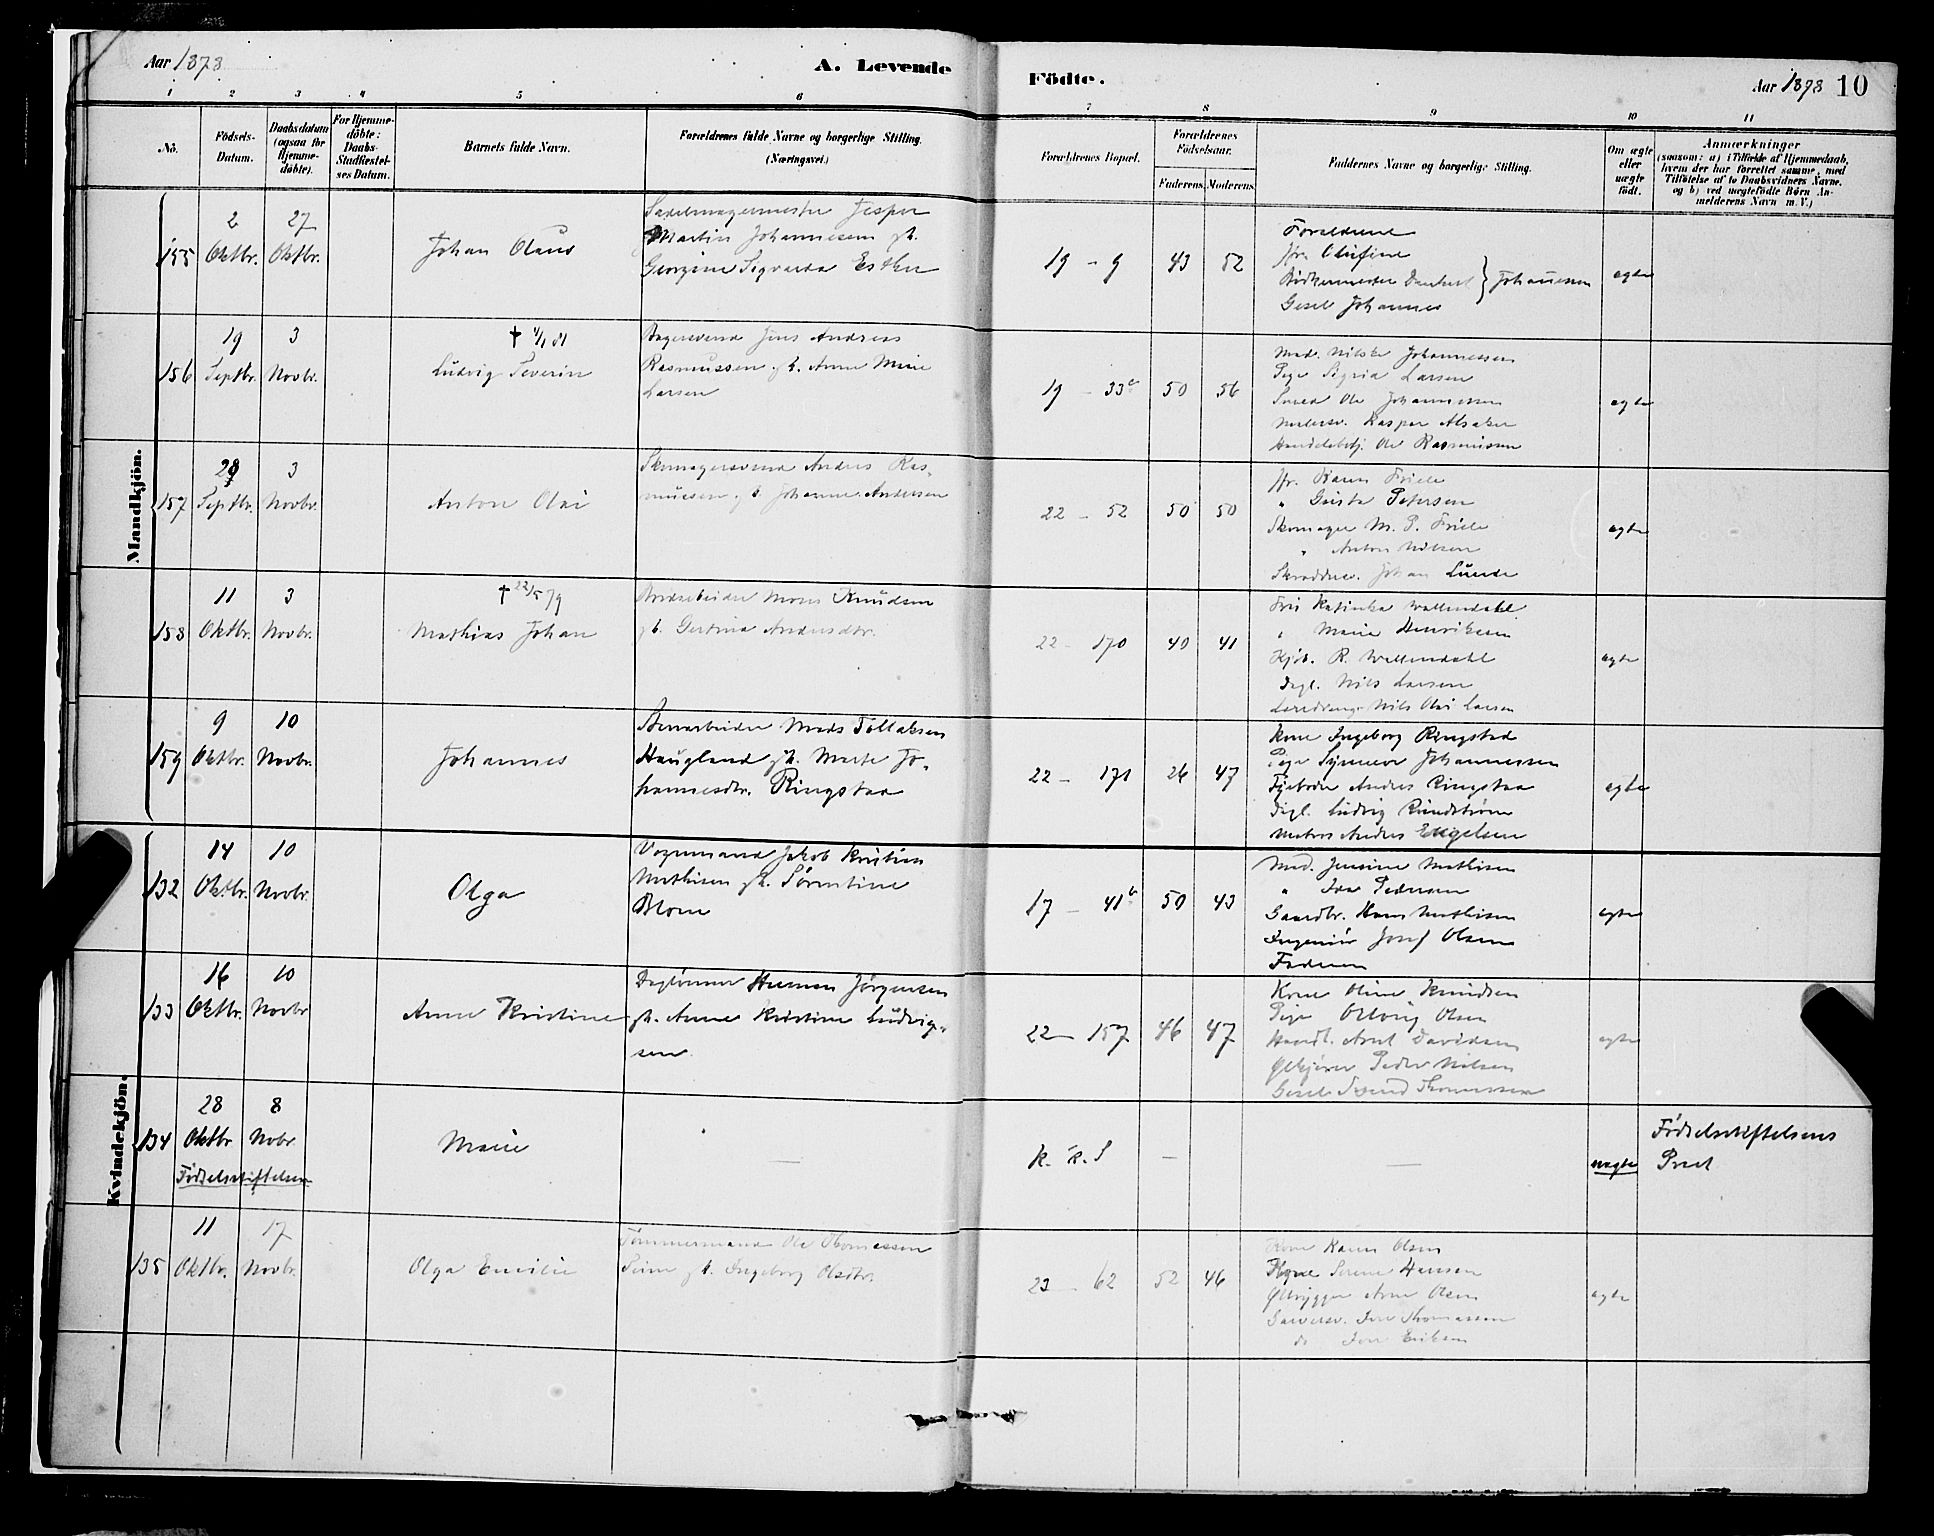 Aar 1878
A. Levende
Födte.
Aar 1878 10
1 2 3 4 5 6 7 8 9 10 11
No.
Födsels-
Datum.
Daabsdatum
(ogsaa for
Hjemme-
döbte).
For Hjemme-
döbte:
Daabs-
Stadfæstel-
ses Datum.
Barnets fulde Navn.
Forældrenes fulde Navne og borgerlige Stilling.
(Næringsvei.)
Forældrenes Bopæl.
Forældrenes
Födselsaar.
Faderens. Moderens.
Faddernes Navne og borgerlige Stilling.
Om ægte
eller
uægte
födt.
Anmærkninger
(saasom: a) i Tilfælde af Hjemmedaab,
hvem der har forrettet samme, med
Tilföielse af to Daabsvidners Navne.
og b) ved uægtefödte Börn An-
melderens Navn m. V.)
Mandkjön.
155
2
Oktbr.
27
Oktbr.
Johan Olaus
Sadelmagermester Jesper
Martin Johannesen gb.
Georgine Sigvarda Esther
19 - 9
43
52
Forældrene
Jfr. Olufine
Bödkermester Dankert } Johannesen
Gesel Johannes
ægte
156
19
Septbr.
3
Novbr.
† 4/1 81
Ludvig Severin
Bagersvend Jens Andreas
Rasmussen gb. Anne Marie
Larsen
19 - 33 b
50
56
Mad. Nilske Johannesen
Pige Sigria Larsen
Smed Ole Johannessen
Malersv. Kaspar Alsaker
Handelsbetj. Ole Rasmussen
ægte
157
28
Septbr.
3
Novbr.
Anton Olai
Skomagersvend Anders Ras-
mussen gb. Johanne Andersen
22 - 52
50
50
Jfr. Karen Friele
" Gusta Petersen
Skomager M. P. Friele
" Anton Nilsen
Skrædder. Johan Lunde
ægte
158
11
Oktbr.
3
Novbr.
† 22/5 79
Mathias Johan
Jordarbeider Mons Knudsen
gb. Gertina Andersdtr.
22 - 170
40
41
Fru Katinka Wallendahl
" Marie Henriksen
Kjöb. R. Wallendahl
Dagl. Nils Larsen
Læredreng Nils Olai Larsen
ægte
159
9
Oktbr.
10
Novbr.
Johannes
Stenarbeider Mads Tollaksen
Haugland gb. Marte Jo-
hannesdtr. Ringstaa
22 - 171
26
47
Kone Ingeborg Ringstad
Pige Synneve Johannessen
Anders Ringstaa
Dagl. Ludvig Rundström
Matros Anders Engelsen
ægte
Kvindekjön.
132
14
Oktbr.
10
Novbr.
Olga
Vognmand Jakob Kristian
Mathisen gb. Sörentine
Blom
17 - 41 b
50
43
Mad. Jensine Mathisen
" Ida Pedersen
Gaardbr. Hans Mathisen
Ingeniör Josef Olsen
Faderen
ægte
133
16
Oktbr.
10
Novbr.
Anne Kristine
Daglönner Herman Jörgensen
gb. Anne Kristine Ludvig-
sen
22 - 157
46
47
Kone Oline Knudsen
Pige Olsen
Handl. Arnt Davidsen
Ölkjörer Peder Nilsen
Gesel Svend Thomassen
ægte
134
28
Oktbr.
8
Nobr
Födselsstiftelsen
Marie
—
K. K. S
—
—
uægte
Födselsstiftelsens
Præst
135
11
Oktbr.
17
Novbr.
Olga Emilie
Tömmermand Ole Thomassen
Seim gb. Ingeborg Olsdtr.
23 - 62
52
46
Kone Karen Olsen
Serene Hansen
Ölbrygger Arne Olsen
Garversv. Jon Thomassen
do Jon Eriksen
ægte